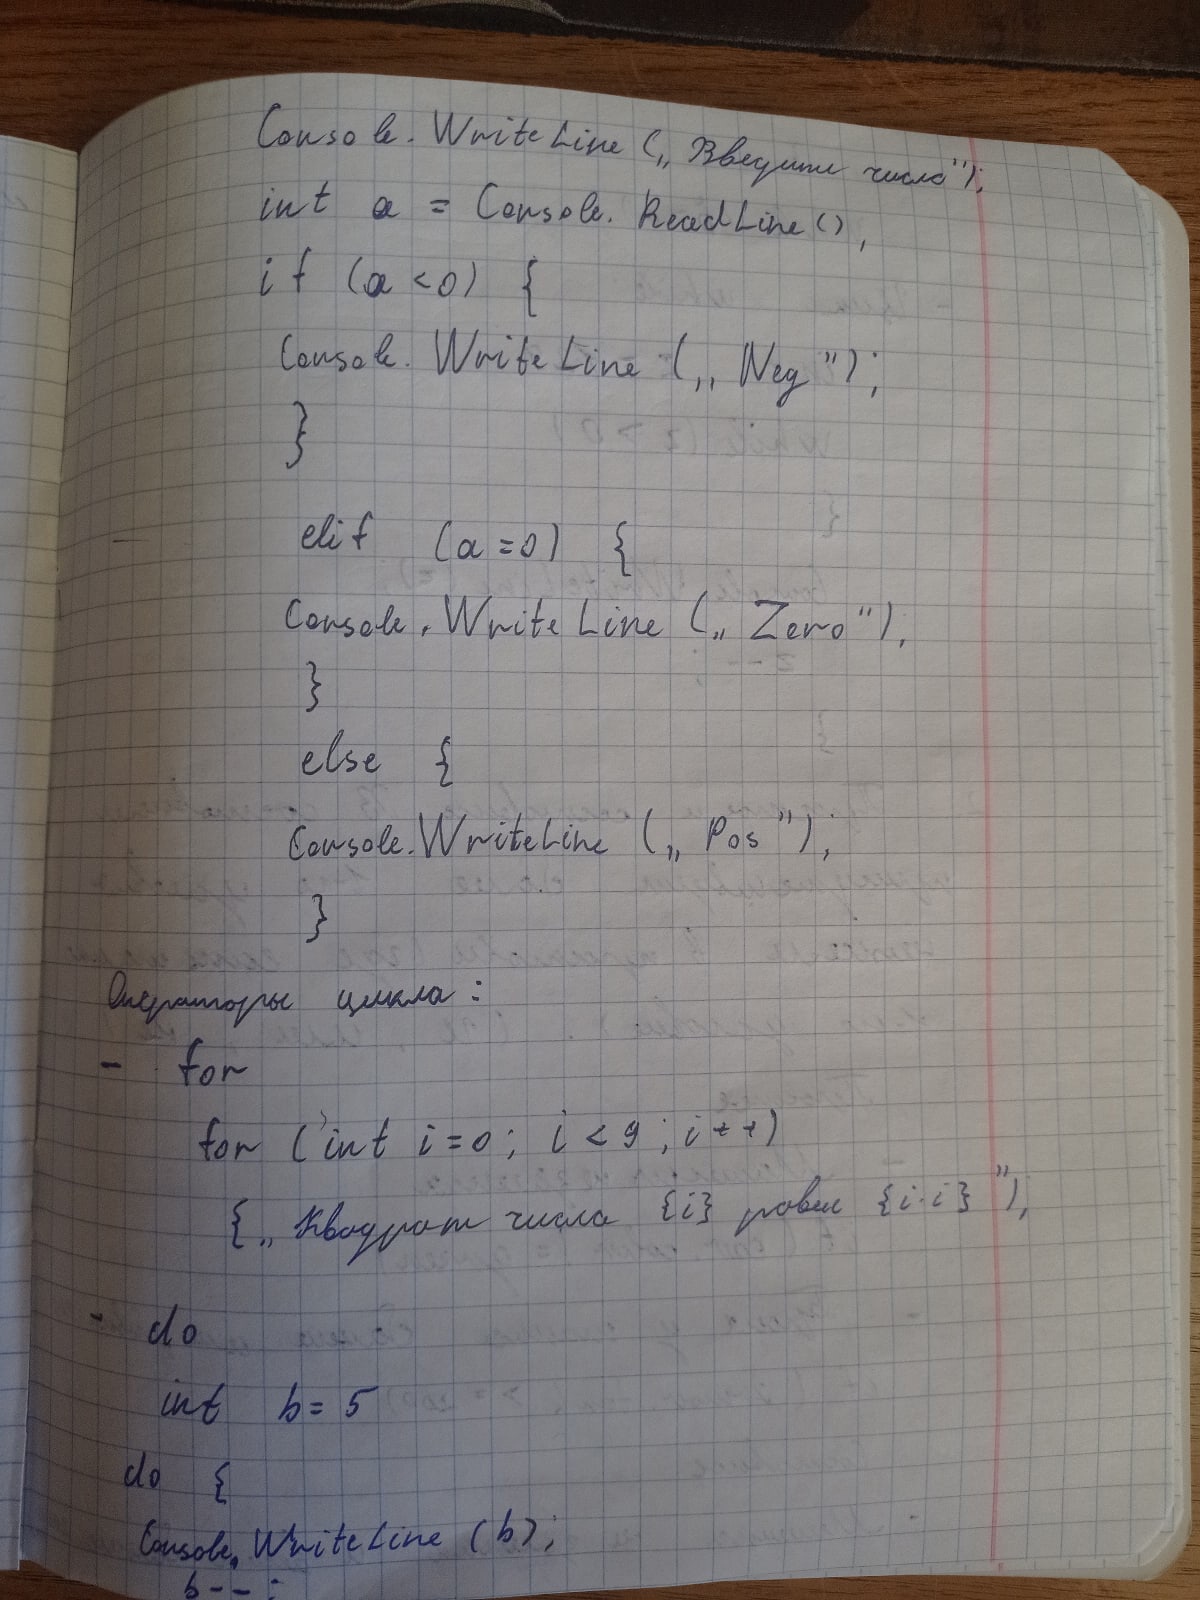 Console.WriteLine („Введите число");
int a = Console.ReadLine(),
if (a<0) {
Console.WriteLine („Neg");
}
elif (a=0) {
Console.WriteLine („Zero"),
}
else {
Console.WriteLine („Pos");
}
Операторы цикла:
- for
for (int i=0; i<9; i++)
{„Квадрат числа {i} равен {i·i}");
- do
int b=5
do {
Console.WriteLine (b);
b--;